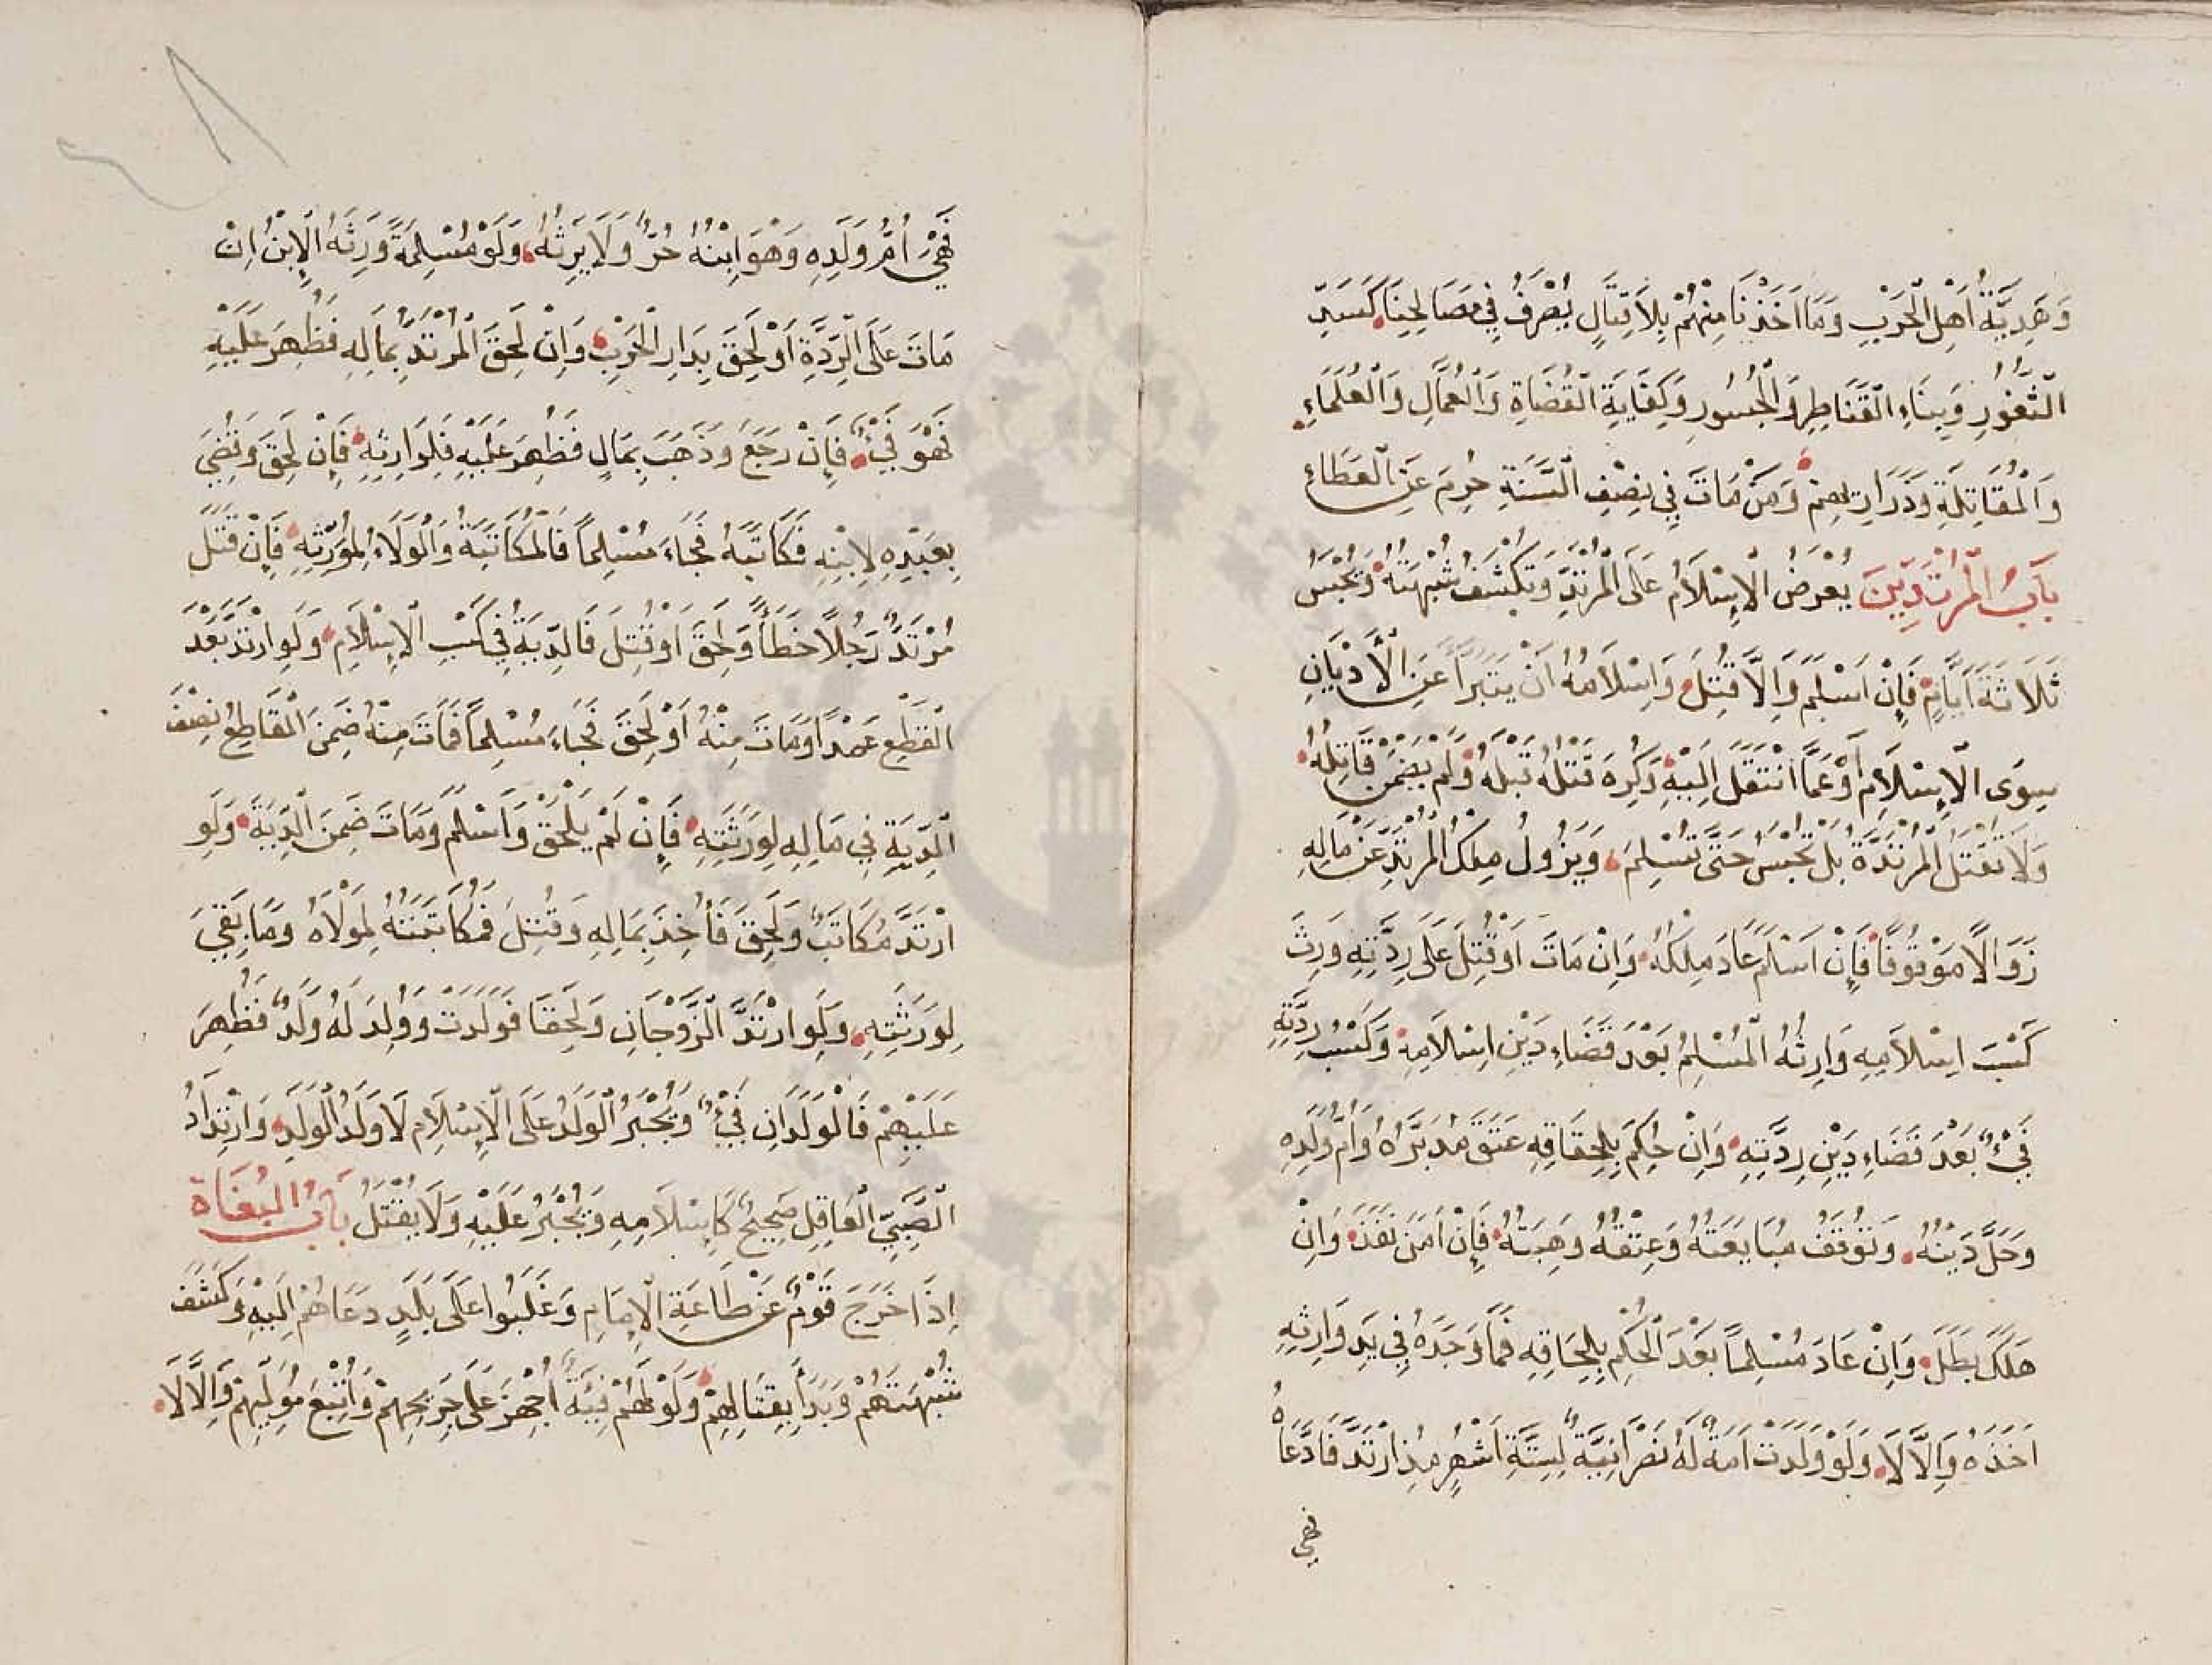 وَهَدِيَّةُ اَهْلِ الْحَرْبِ وَمَا اَخَذْنَا مِنْهُمْ بِلَا قِتَالٍ يُصْرَفُ فِي مَصَالِحِنَا كَسَدِّ
الثُّغُورِ وَبِنَاءِ الْقَنَاطِرِ وَالْجُسُورِ وَكِفَايَةِ الْقُضَاةِ وَالْعُمَّالِ وَالْعُلَمَاءِ
وَالْمُقَاتِلَةِ وَذَرَارِيهِمْ وَمَنْ مَاتَ فِي نِصْفِ السَّنَةِ حُرِمَ عَنِ الْعَطَاءِ
بَابُ الْمُرْتَدِّينَ يُعْرَضُ الْاِسْلَامُ عَلَى الْمُرْتَدِّ وَتُكْشَفُ شُبْهَتُهُ وَيُحْبَسُ
ثَلَاثَةَ اَيَّامٍ فَاِنْ اَسْلَمَ وَاِلَّا قُتِلَ وَاِسْلَامُهُ اَنْ يَتَبَرَّأَ عَنِ الْأَدْيَانِ
سِوَى الْاِسْلَامِ اَوْ عَمَّا انْتَقَلَ اِلَيْهِ وَكُرِهَ قَتْلُهُ قَبْلَهُ وَلَمْ يَضْمَنْ قَاتِلُهُ
وَلَا تُقْتَلُ الْمُرْتَدَّةُ بَلْ تُحْبَسُ حَتَّى تُسْلِمَ وَيَزُولُ مِلْكُ الْمُرْتَدِّ عَنْ مَالِهِ
زَوَالًا مَوْقُوفًا فَاِنْ اَسْلَمَ عَادَ مِلْكُهُ وَاِنْ مَاتَ اَوْ قُتِلَ عَلَى رِدَّتِهِ وَرِثَ
كَسْبَ اِسْلَامِهِ وَارِثُهُ الْمُسْلِمُ بَعْدَ قَضَاءِ دَيْنِ اِسْلَامِهِ وَكَسْبُ رِدَّتِهِ
فَيْءٌ بَعْدَ قَضَاءِ دَيْنِ رِدَّتِهِ وَاِنْ حُكِمَ بِلِحَاقِهِ عَتَقَ مُدَبَّرُهُ وَاُمُّ وَلَدِهِ
وَحَلَّ دَيْنُهُ وَتُوقَفُ مُبَايَعَتُهُ وَعِتْقُهُ وَهِبَتُهُ فَاِنْ اٰمَنَ نَفَذَ وَاِنْ
هَلَكَ بَطَلَ وَاِنْ عَادَ مُسْلِمًا بَعْدَ الْحُكْمِ بِلِحَاقِهِ فَمَا وَجَدَهُ فِي يَدِ وَارِثِهِ
اَخَذَهُ وَاِلَّا لَا وَلَوْ وَلَدَتْ اَمَةٌ لَهُ نَصْرَانِيَّةٌ لِسِتَّةِ اَشْهُرٍ مُذِ ارْتَدَّ فَادَّعَاهُ
فهي
فَهِيَ اُمُّ وَلَدِهِ وَهُوَ اِبْنُهُ حُرٌّ وَلَا يَرِثُهُ وَلَوْ مُسْلِمَةً وَرِثَهُ الْاِبْنُ اِنْ
مَاتَ عَلَى الرِّدَّةِ اَوْ لَحِقَ بِدَارِ الْحَرْبِ وَاِنْ لَحِقَ الْمُرْتَدُّ بِمَالِهِ فَظُهِرَ عَلَيْهِ
فَهُوَ فَيْءٌ فَاِنْ رَجَعَ وَذَهَبَ بِمَالٍ فَظُهِرَ عَلَيْهِ فَلِوَارِثِهِ فَاِنْ لَحِقَ وَقُضِيَ
بِعَبْدِهِ لِابْنِهِ فَكَاتَبَهُ فَجَاءَ مُسْلِمًا فَالْمُكَاتَبَةُ وَالْوَلَاءُ لِمُوَرِّثِهِ فَاِنْ قَتَلَ
مُرْتَدٌّ رَجُلًا خَطَأً وَلَحِقَ اَوْ قُتِلَ فَالدِّيَةُ فِي كَسْبِ الْاِسْلَامِ وَلَوِ ارْتَدَّ بَعْدَ
الْقَطْعِ عَمْدًا وَمَاتَ مِنْهُ اَوْ لَحِقَ فَجَاءَ مُسْلِمًا فَمَاتَ مِنْهُ ضَمِنَ الْقَاطِعُ نِصْفَ
الدِّيَةِ فِي مَالِهِ لِوَرَثَتِهِ فَاِنْ لَمْ يَلْحَقْ وَاَسْلَمَ وَمَاتَ ضَمِنَ الدِّيَةَ وَلَوِ
ارْتَدَّ مُكَاتَبٌ وَلَحِقَ فَأُخِذَ بِمَالِهِ وَقُتِلَ فَمُكَاتَبَتُهُ لِمَوْلَاهُ وَمَا بَقِيَ
لِوَرَثَتِهِ وَلَوِ ارْتَدَّ الزَّوْجَانِ وَلَحِقَا فَوَلَدَتْ وَوُلِدَ لَهُ وَلَدٌ فَظُهِرَ
عَلَيْهِمْ فَالْوَلَدَانِ فَيْءٌ وَيُجْبَرُ الْوَلَدُ عَلَى الْاِسْلَامِ لَا وَلَدُ الْوَلَدِ وَارْتِدَادُ
الصَّبِيِّ الْعَاقِلِ صَحِيحٌ كَاِسْلَامِهِ وَيُجْبَرُ عَلَيْهِ وَلَا يُقْتَلُ بَابُ الْبُغَاةِ
اِذَا خَرَجَ قَوْمٌ عَنْ طَاعَةِ الْاِمَامِ وَغَلَبُوا عَلَى بَلَدٍ دَعَاهُمْ اِلَيْهِ وَكَشَفَ
شُبْهَتَهُمْ وَبَدَأَ بِقِتَالِهِمْ وَلَوْ لَهُمْ فِئَةٌ اُجْهِزَ عَلَى جَرِيحِهِمْ وَاتُّبِعَ مُوَلِّيهِمْ وَاِلَّا لَا